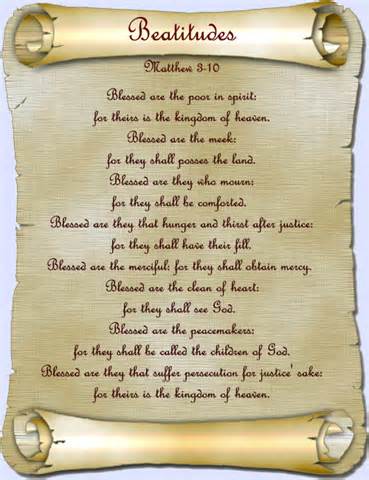 Beatitudes
Matthew 3-10
Blessed are the poor in spirit:
for theirs is the kingdom of heaven.
Blessed are the meek:
for they shall posses the land.
Blessed are they who mourn:
for they shall be comforted.
Blessed are they that hunger and thirst after justice:
for they shall have their fill.
Blessed are the merciful: for they shall obtain mercy.
Blessed are the clean of heart:
for they shall see God.
Blessed are the peacemakers:
for they shall be called the children of God.
Blessed are they that suffer persecution for justice' sake:
for theirs is the kingdom of heaven.